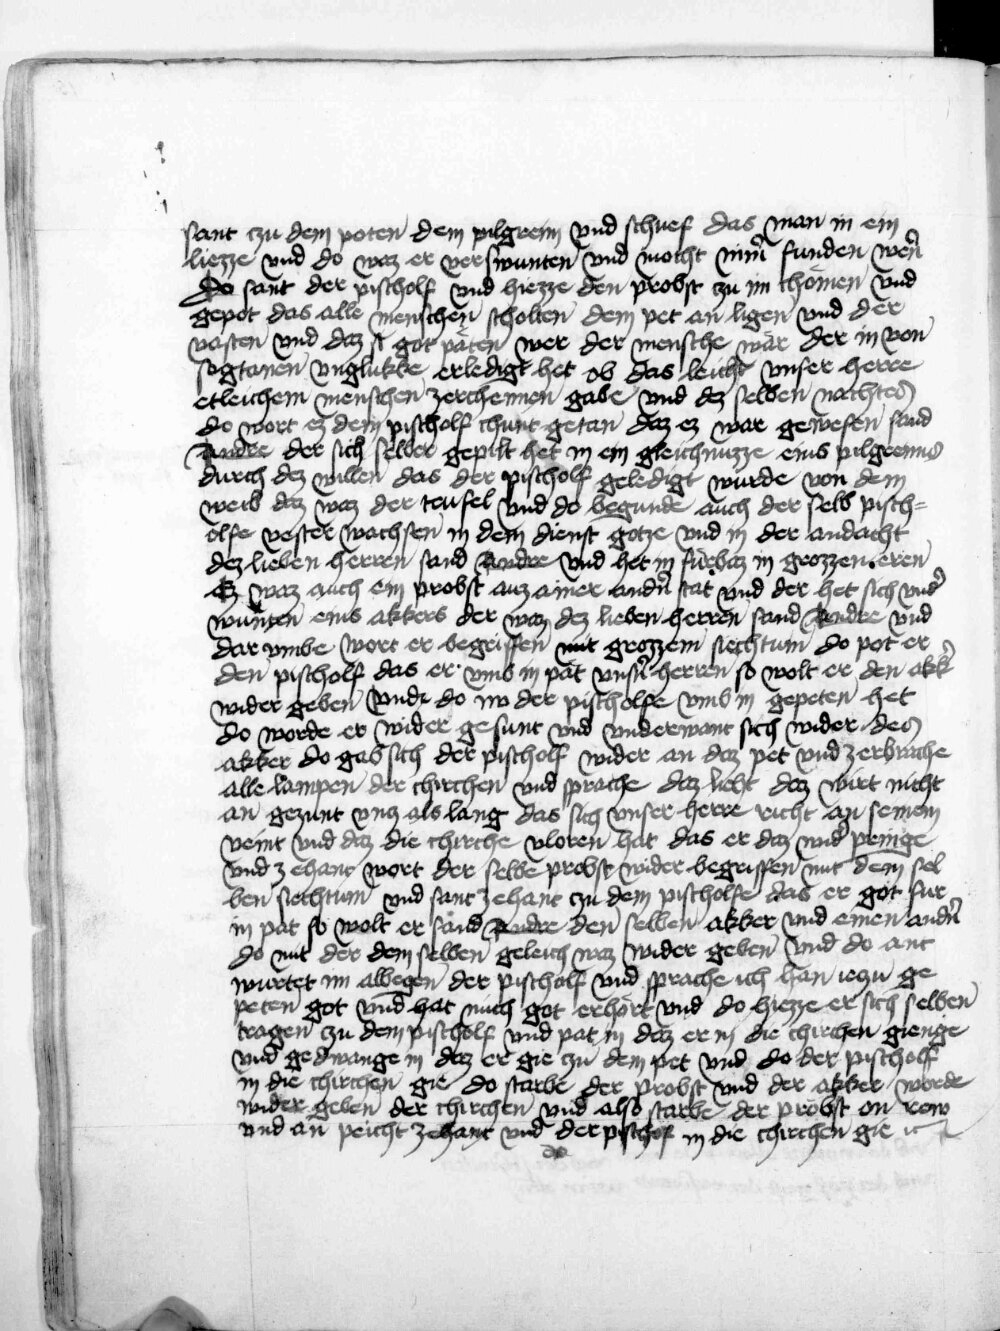 sant czu dem poten dem pilgreim vnd schuef das man in ein
liezze vnd do waz er verswunten vnd mocht nim̄ funden wen̄
Do sant der pischolf vnd hiezze den probst zu im chömen vnd
gepot das alle menschen scholten dem pet an ligen vnd der
vasten vnd daz si got päten wer der mensche wär der in von
sogtanen vnglukke erledigt het ob das leicht vnser herre
etleichem menschen zerchennen gabe vnd dez selben nachtes
do wort ez dem pischolf chunt getan daz ez war gewesen sand
Andre der sich selber gepilt het in ein gleichnuzze eins pilgreims
durch dez willen das der pischolf geledigt wurde von dem
weib daz waz der teufel vnd do begunde auch der selb pisch=
olfe vester wachsen in dem dienst gotze vnd in der andacht
dez lieben herren sand Andre vnd het in fürbaz in grozzen eren
Ez waz auch ein probst auz ainer andn̄ stat vnd der het sich vnd̄
wunten eins akkers der waz dez lieben herren sand Andre vnd
dar vmbe wort er begriffen mit grozzem siechtum do pot er
den pischolf das er vmb in pät vnsn̄ herren so wolt er den akk̄
wider geben vnd do nw der pischolfe vmb in gepeten het
do worde er wider gesunt vnd vnderwant sich wider des
akker do gab sich der pischolf wider an daz pet vnd zerbrache
alle lampen der chirchen vnd sprache daz liecht daz wirt nicht
an gezunt vnz als lang das sich vnser herre richt an seinem
veint vnd daz die chirche vloren hat das er daz wid̄ pringe
vnd zehant wort der selbe probst wider begriffen mit dem sel
ben siechtum vnd sant zehant czu dem pischolfe das er got fur
in pät so wolt er sand Andre den selben akker vnd einen andn̄
do mit der dem selben geleich waz wider geben vnd do ant
wurtet im albegen der pischolf vnd sprache ich han iezu ge
peten got vnd hat mich got erhört vnd do hiezze er sich selben
tragen czu dem pischolf vnd pat in daz er in die chirchen gienge
vnd gedwange in daz er gie czu dem pet vnd do der pischolf
in die chirchen gie do starbe der probst vnd der akker worde
wider geben der chirchen vnd also starbe der probst on rew
vnd an peicht zehant vnd der pischof in die chirchen gie